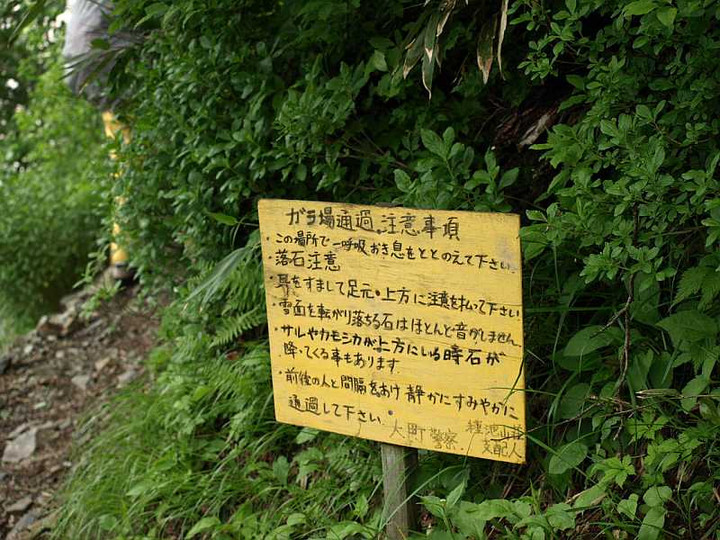 ガラ場通過 注意事項
・この場所で一呼吸おき息をととのえて下さい.
・落石注意
耳をすまして足元・上方に注意を払って下さい
・雪面を転がり落ちる石はほとんど音がしません
・サルやカモシカが上方にいる時石が
降ってくる事もあります
・前後の人と間隔をあけ静かにすみやかに
通過して下さい.
大町警察. 種池山荘
支配人